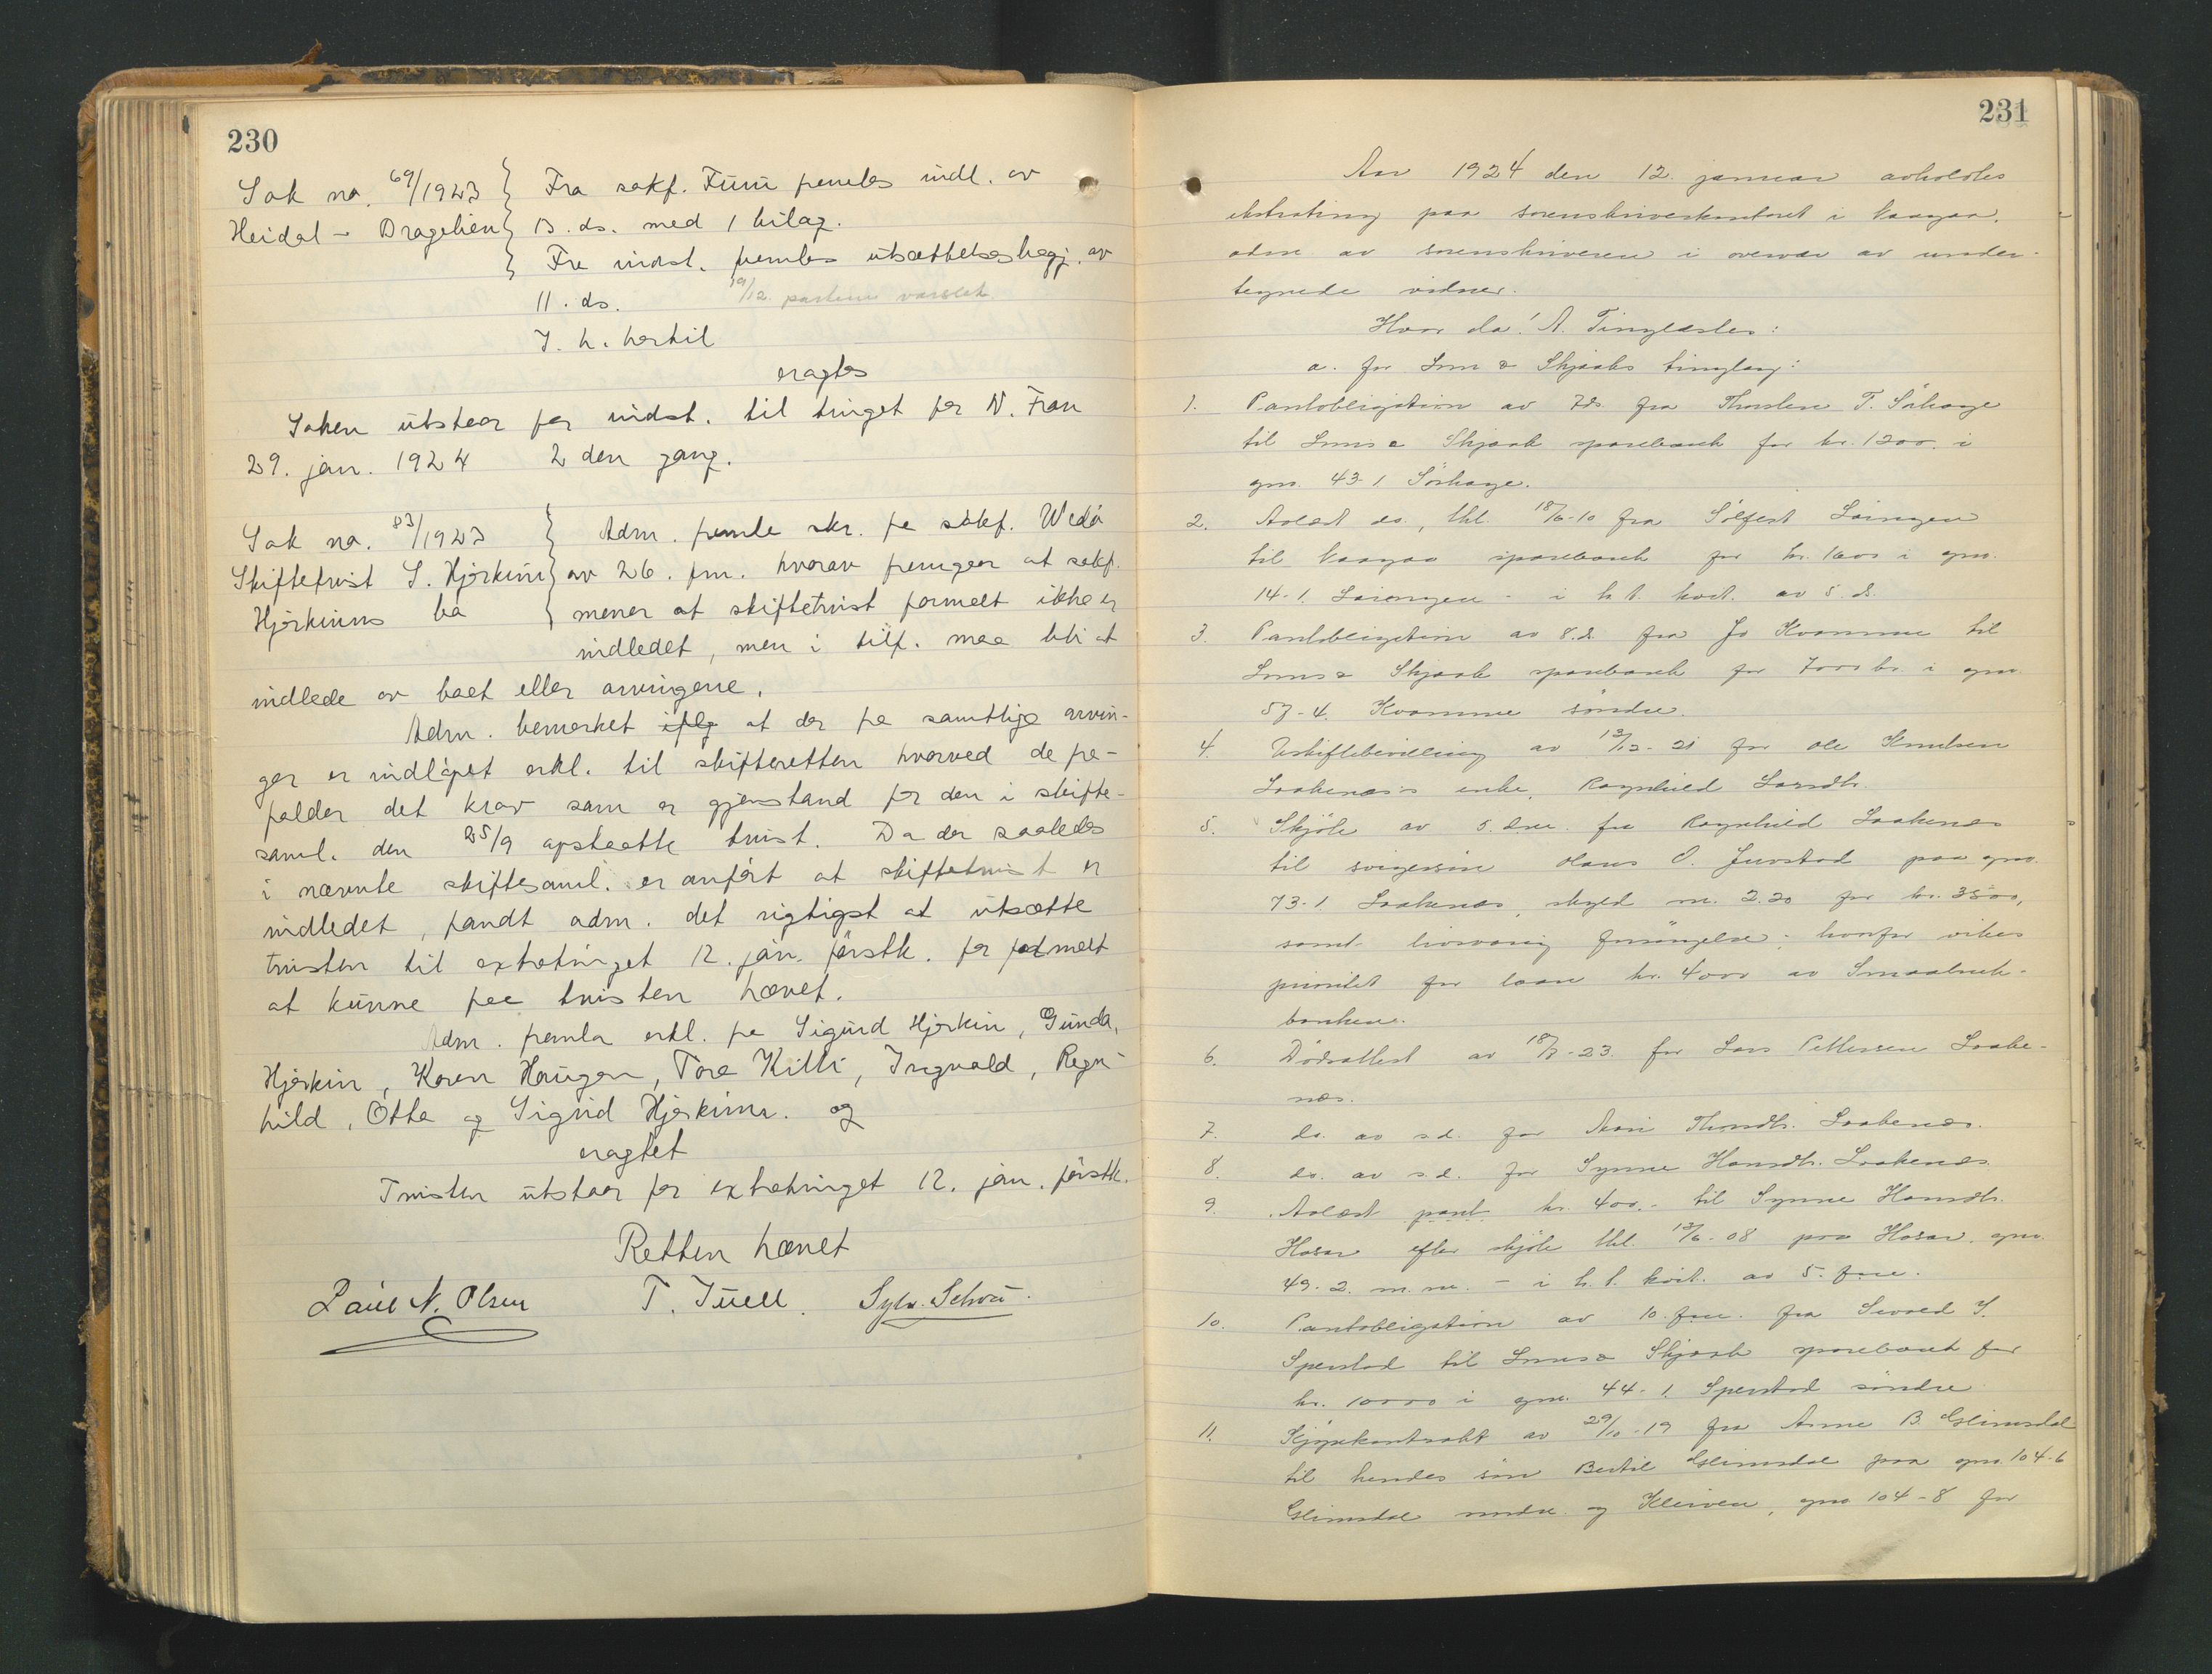 230
Sak no. 69/1923 } Fra sakf. Furu fremles indl. av
Heidal - Dragelien } 13. ds. med 1 bilag.
Fra indst. fremles utsættelsesbegj. av
11. ds. 19/12. partene varslet
I. h. hertil
eragtes
Saken utstaar for indst. til tinget for N. Fron
29. jan. 1924 2 den gang.
Sak no. 83/1923 } Adm. fremle skr. fra sakf. Wedø
Skiftetvist S. Hjerkinn } av 26. fm. hvorav fremgaar at sakf.
Hjerkinns bo } mener at skiftetvist formelt ikke er
indledet, men i tilf. maa bli at
indlede av boet eller arvingene.
Adm. bemerket ifølg at der fra samtlige arvin-
ger er indløpet erkl. til skifteretten hvorved de fra-
falder det krav som er gjenstand for den i skifte-
saml. den 25/9 opstaatte tvist. Da der saaledes
i nævnte skiftesaml. er anført at skiftetvist er
indledet, fandt adm. det rigtigst at utsætte
tvisten til extratinget 12. jan. førstk. for formelt
at kunne faa tvisten hævet.
Adm. fremla erkl. fra Sigurd Hjerkin, Gunda
Hjerkin, Karen Haugen, Tora Killi, Ingvald, Ragn-
hild, Otta og Sigrid Hjerkinn. og
eragtet
Tvisten utstaar for extratinget 12. jan. førstk.
Retten hævet
Paul N. Olsen T. Juell. Sylv. Schou.
231
Aar 1924 den 12. januar avholdtes
ekstrating paa sorenskriverkontoret i Vaagaa,
adm. av sorenskriveren i overvær av under-
tegnede vidner.
Hvor da! A. Tinglæstes:
a. for Lom & Skjaaks tinglag:
1. Pantobligation av 7ds. fra Thorsten T. Sørhage
til Lom & Skjaak sparebank for kr. 1200 i
gno. 43-1 Sørhage.
2. Avlæst do., thl. 18/6-10 fra Sølfest Loingen
til Vaagaa sparebank for kr. 1600 i gno.
14-1. Loingen - i h. t. kvit. av 5. ds.
3. Pantobligation av 8. ds. fra Jo Kvamme til
Lom & Skjaak sparebank for 7000 kr. i gno.
57-4. Kvamme søndre.
4. Uskiftebevilling av 13/12-21 for Ole Knutsen
Laakenæs's enke, Ragnhild Larsdtr.
5. Skjøte av 5. dm. fra Ragnhild Laakenæs
til svigersøn Hans O. Jurstad paa gno.
73-1 Laakenæs, skyld m. 2.20 for kr. 3500,
samt livsvarig forsørgelse; hvorfor vikes
prioritet for laan kr. 4000 av Smaabruk-
banken.
6. Dødsattest av 18/7-23 for Lars Pettersen Laake-
næs.
7. do. av s.d. for Mari Thordtr. Laakenæs.
8. do. av s.d. for Synne Hansdtr. Laakenæs
9. Avlæst pant kr. 400.- til Synne Hansdtr.
Hosar efter skjøte thl. 13/6-08 paa Hosar, gno.
49-2. m. m. - i h. t. kvit. av 5. fm.
10. Pantobligation av 10. fm. fra Sevald S.
Sperstad til Lom & Skjaak sparebank for
kr. 10000 i gno. 44-1. Sperstad søndre
11. Kjøpekontrakt av 29/10-19 fra Anne B. Glimsdal
til hendes søn Bertil Glimsdal paa gno. 104-6
Glimsdal nordre og Kleiven, gno 104-8 for